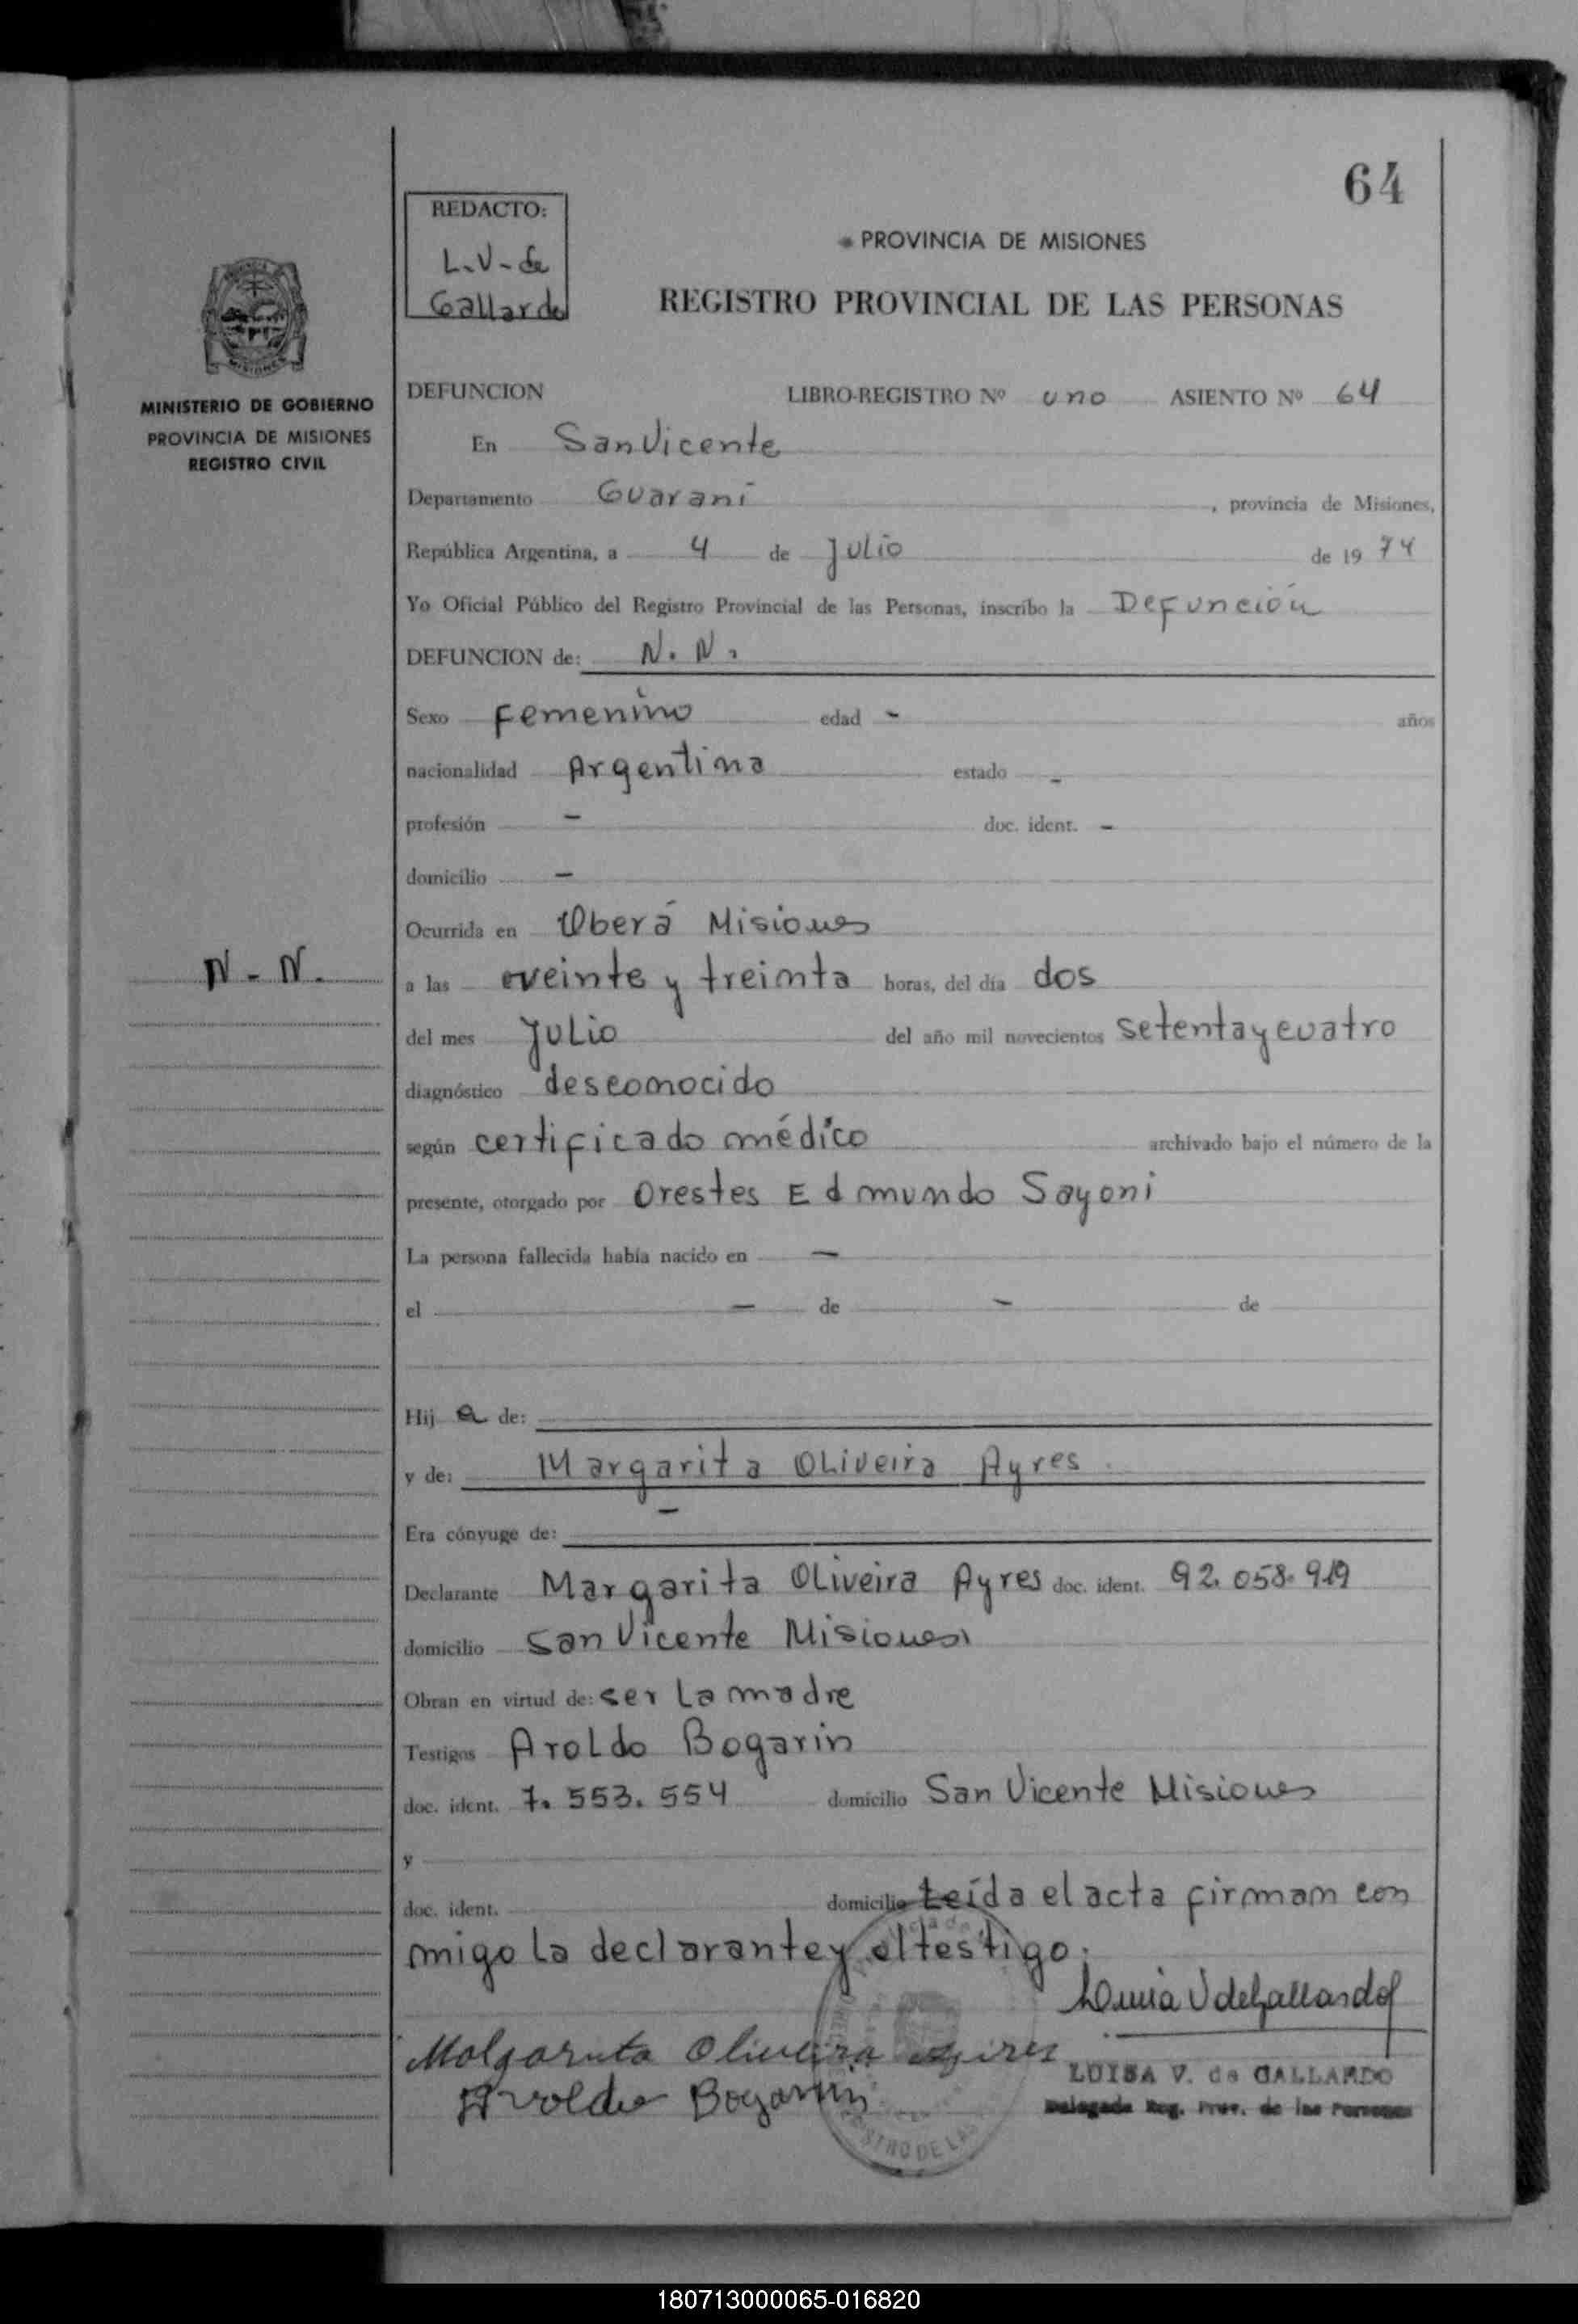 64
REDACTO:
L.V-de
Gallardo
PROVINCIA DE MISIONES
REGISTRO PROVINCIAL DE LAS PERSONAS
MINISTERIO DE GOBIERNO
PROVINCIA DE MISIONES
REGISTRO CIVIL
DEFUNCION LIBRO-REGISTRO Nº uno ASIENTO Nº 64
En San Vicente
Departamento Guaraní, provincia de Misiones,
República Argentina, a 4 de Julio de 1974
Yo Oficial Público del Registro Provincial de las Personas, inscribo la Defunción
DEFUNCION de: N. N.
Sexo Femenino edad - años
nacionalidad Argentina estado -
profesión - doc. ident. -
domicilio -
Ocurrida en Oberá Misiones
N-N.
a las veinte y treinta horas, del día dos
del mes Julio del año mil novecientos setenta y cuatro
diagnóstico desconocido
según certificado médico archivado bajo el número de la
presente, otorgado por Orestes Edmundo Sayoni
La persona fallecida había nacido en -
el - de - de
Hij a de:
y de: Margarita Oliveira Ayres.
Era cónyuge de: -
Declarante Margarita Oliveira Ayres doc. ident. 92.058.919
domicilio San Vicente Misiones
Obran en virtud de: ser la madre
Testigos Aroldo Bogarin
doc. ident. 7.553.554 domicilio San Vicente Misiones
y
doc. ident. domicilio Leída el acta firman con
migo la declarante y el testigo.
Luisa V de Gallardo
Malgarita Oliveira Ayires
LUISA V. de GALLARDO
Aroldo Bogarin
Delegada Reg. Prov. de las Personas
STRO DE LAS
180713000065-016820